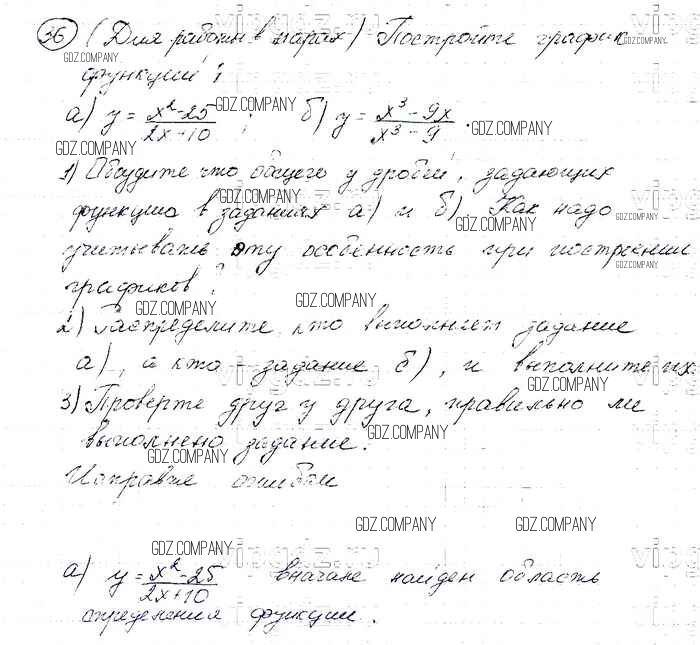 36 (Для работы в парах) Постройте график
функции:
а) y = x²-25 / 2x+10 ; б) y = x³-9x / x³-9 .
1) Обсудите что общего у дробей, задающих
функцию в заданиях а) и б). Как надо
учитывать эту особенность при построении
графиков?
2) Распределите, кто выполняет задание
а), а кто - задание б), и выполните их.
3) Проверьте друг у друга, правильно ли
выполнено задание.
Исправьте ошибки
а) y = x²-25 / 2x+10 вначале найдем область
определения функции.
GDZ.COMPANY
vipgdz.ru